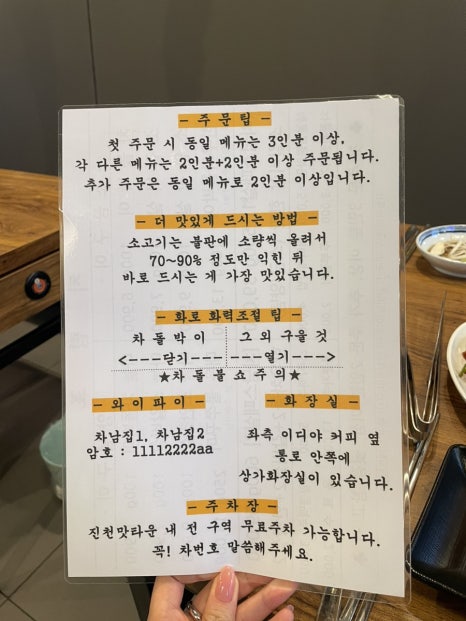 - 주 문 팁 -
첫 주문 시 동일 메뉴는 3인분 이상,
각 다른 메뉴는 2인분+2인분 이상 주문됩니다.
추가 주문은 동일 메뉴로 2인분 이상입니다.
- 더 맛있게 드시는 방법 -
소고기는 불판에 소량씩 올려서
70~90% 정도만 익힌 뒤
바로 드시는 게 가장 맛있습니다.
- 화로 화력조절 팁 -
차 돌 박 이 그 외 구울 것
<---닫기--- ---열기--->
★차 돌 불 쇼 주 의★
- 와 이 파 이 -
차남집1, 차남집2
암호 : 11112222aa
- 화 장 실 -
좌측 이디야 커피 옆
통로 안쪽에
상가화장실이 있습니다.
- 주 차 장 -
진천맛타운 내 전 구역 무료주차 가능합니다.
꼭! 차번호 말씀해주세요.